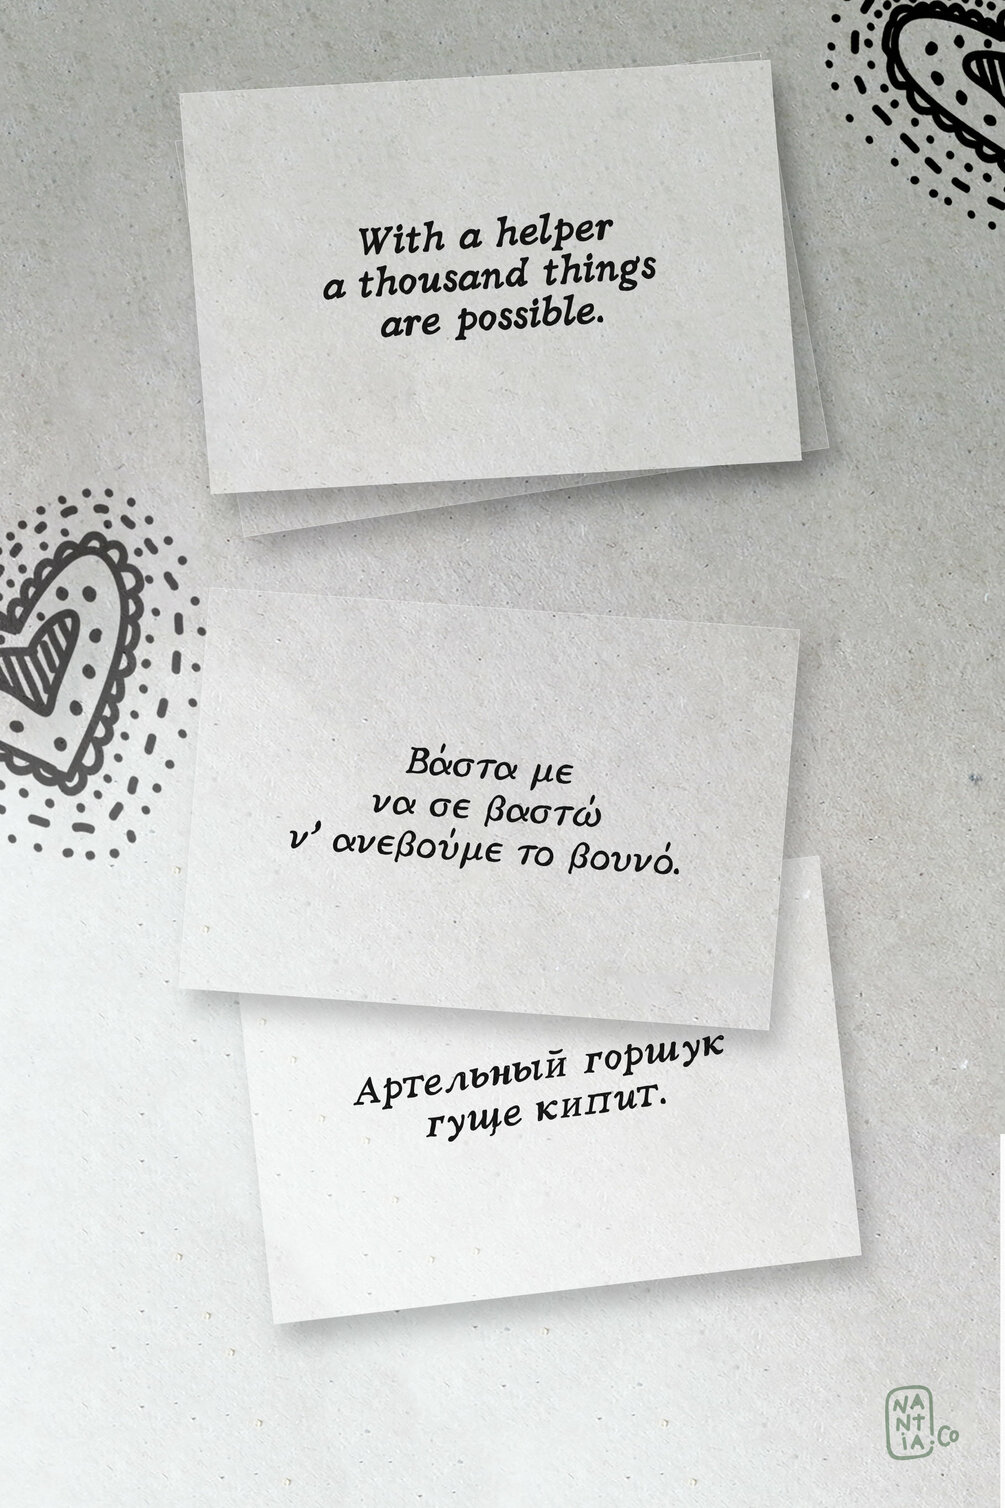 With a helper
a thousand things
are possible.
Βάστα με
να σε βαστώ
ν’ ανεβούμε το βουνό.
Артельный горшук
гуще кипит.
NA
NT
iA.Co